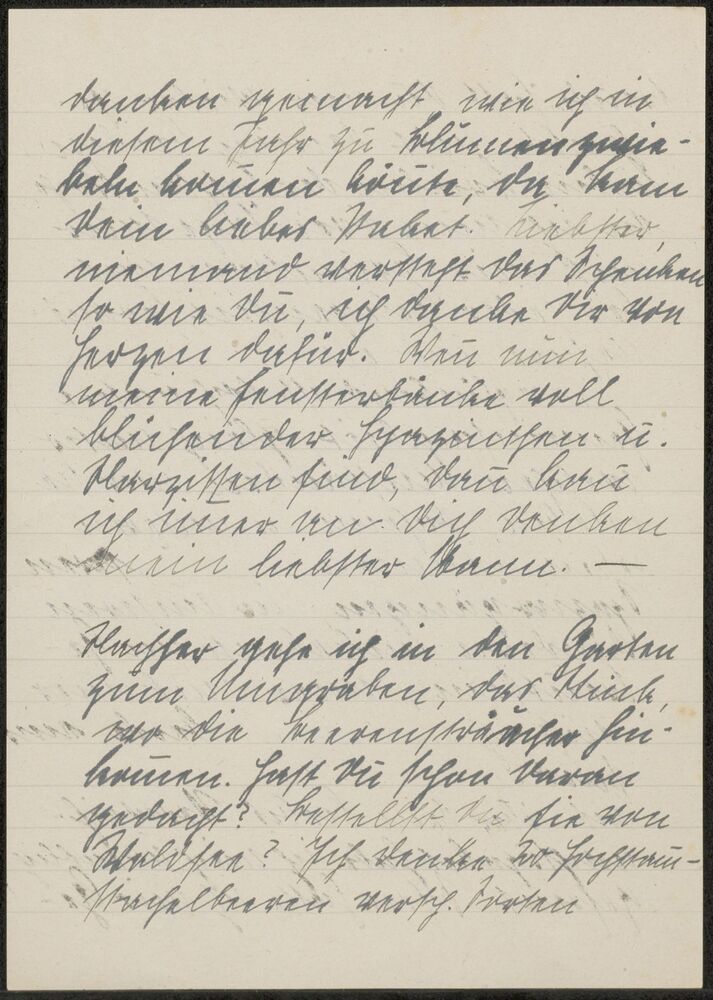 danken gemacht, wie ich in
diesem Jahr zu Blumenzwie-
beln kom̅en kön̅te, da kam
Dein liebes Paket. Liebster,
niemand versteht das Schenken
so wie Du, ich danke Dir von
Herzen dafür. Wen̅ nun
meine Fensterbänke voll
blühender Hyazinthen u.
Narzissen sind, dan̅ kan̅
ich im̅er an Dich denken
mein liebster Mann. —
Nachher gehe ich in den Garten
zum Umgraben, das Stück,
wo die Beerensträucher hin-
kom̅en. Hast Du schon daran
gedacht? Bestellst Du sie von
Waldsee? Ich denke 20 Hochstam̅-
stachelbeeren versch. Sorten